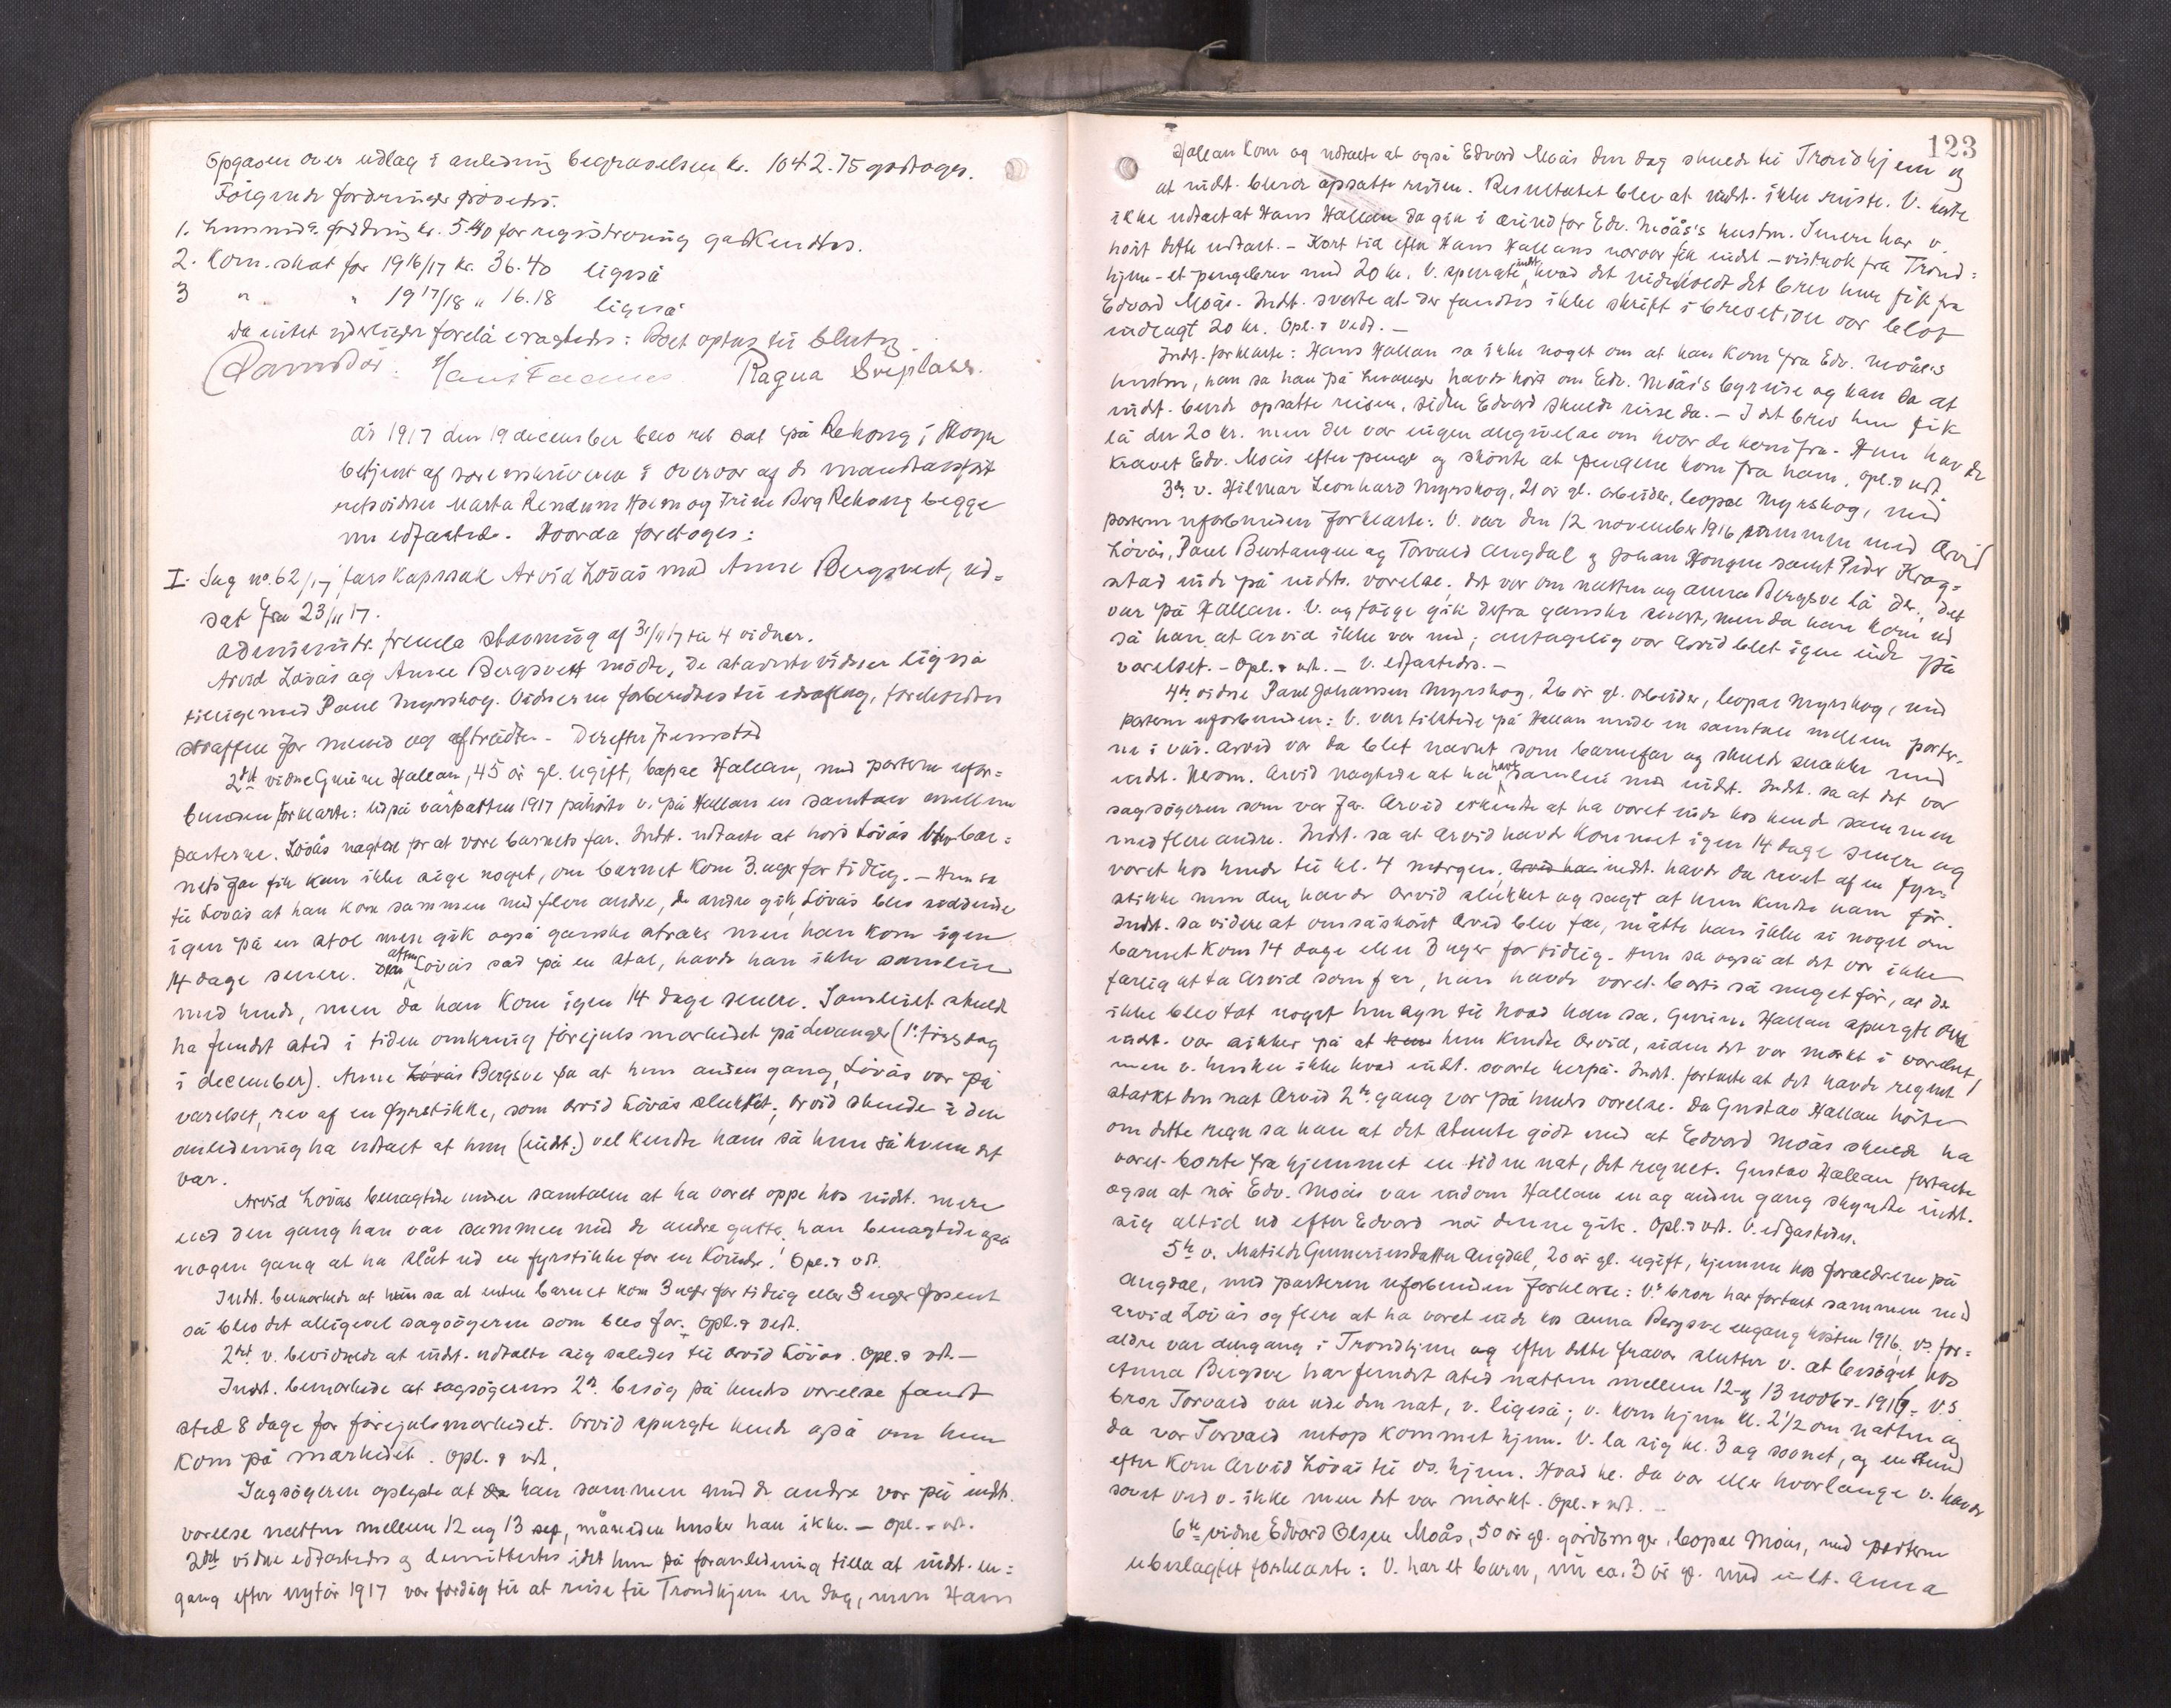 Opgaven over utlag i anledning begravelsen kr. 1042.75 godtoges.
Følgende fordringer prøvedes.
1. fordring kr. 5.40 for registrering godkjendtes.
2. Kom. skat for 1916/17 kr. 36.40 ligeså
3 " " 1917/18 " 16.18 ligeså
Da intet yderligere forelå eragtedes: Boet optas til slutn.
Ragna Sveplass.
År 1917 den 19 december blev ret sat på Rekong i Skogn
betjent af sorenskriveren i overvær af de mandtalsførte
retsvidner Marta Rendum Holem og Trine Berg Rekong begge
nu edfæstede. Hvorda foretoges:
I. Sag no. 62/17 farskapssak Arvid Lövås mod Anne Bergsvedt, ud=
sat fra 23/11 17.
Administr. fremla stævning af 3/11 17 til 4 vidner.
Arvid Lövås og Anne Bergsvedt mødte, de stævnte vidner ligeså
tilligemed Paul Myrskog. Vidnerne forberedtes til edsaflæg, foreholdtes
straffen for mened og aftrådte. Derefter fremstod
2det vidne Gurine Hallan, 45 år gl. ugift, bopæl Hallan, med parterne ufor=
bunden forklarte: Ud på vårparten 1917 påhørte v. på Hallan en samtale mellem
parterne. Lövås nægtede for at være barnets far. Indst. udtalte at hvis Lövås blev bar=
nets far fik han ikke sige noget, om barnet kom 3 uger for tidlig. – Hun sa
til Lövås at han kom sammen med flere andre, de andre gik, Lövås blev siddende
igjen på en stol men gik også ganske straks men han kom igjen
14 dage senere. Den aften Lövås sad på en stol, havde han ikke samleie
med hende, men da han kom igjen 14 dage senere. Samleiet skulde
ha fundet sted i tiden omkring førejulsmarkedet på Levanger (1ste tirsdag
i december). Anne Lövås Bergsve sa at hun anden gang, Lövås var på
værelset, rev af en fyrstikke, som Arvid Lövås slukket; Arvid skulde i den
anledning ha udtalt at hun (indst.) vel kendte ham så hun så hvem det
var.
Arvid Lövås benægtede under samtalen at ha været oppe hos indst. mere
end den gang han var sammen med de andre gutter, han benægtede også
nogen gang at ha slåt ud en fyrstikke for en kvinde. Opl. & vdt.
Indst. bemærkede at hun sa at enten barnet kom 3 uger for tidlig eller 3 uger for sent
så blev det alligevel sagsøgeren som blev far. Opl. & vedt.
2det v. bevidnede at indst. udtalte sig således til Arvid Lövås. Opl. & vdt. –
Indst. bemærkede at sagsøgerens 2det besøg på hendes værelse fandt
sted 8 dage før førejulsmarkedet. Arvid spurgte hende også om hun
kom på markedet. Opl. & vdt.
Sagsøgeren oplyste at da han sammen med de andre var på indst.
værelse natten mellem 12 og 13 sep, måneden husker han ikke. – Opl. & vdt.
2det vidne edfæstedes og demittertes idet hun på foranledning tilla at indst. en=
gang efter nytår 1917 var færdig til at reise til Trondhjem en dag, men Hans
123
Hallan kom og udtalte at også Edvard Moås den dag skulde til Trondhjem og
at indst. burde opsætte reisen. Resultatet blev at indst. ikke reiste. V. hørte
ikke udtalt at Hans Hallan da gik i ærind for Edv. Moås's hustru. Senere har v.
hørt dette udtalt. – Kort tid efter Hans Hallans nærvær fik indst – vistnok fra Trond=
hjem – et pengebrev med 20 kr. V. spurgte indst. hvad det indeholdt det brev hun fik fra
Edvard Moås. Indst. svarte at der fandtes ikke skrift i brevet, der var blot
indlagt 20 kr. Opl. & vedt. –
Indst. forklarte: Hans Hallan sa ikke noget om at han kom fra Edv. Moås's
hustru, han sa han på Levanger havde hørt om Edv. Moås's byreise og han sa at
indst. burde opsætte reisen, siden Edvard skulde reise da. – I det brev hun fik
lå der 20 kr. men der var ingen angivelse om hvor de kom fra. Hun havde
krævet Edv. Moås efter penge og skønte at pengene kom fra ham. Opl. & vdt.
3die v. Hilmar Leonhard Myrskog, 21 år gl. arbeider, bopæl Myrskog, med
parterne uforbunden forklarte: V. var den 12 november 1916 sammen med Arvid
Lövås, Paul Burtangen og Torvald Augdal og Johan Hongen samt Peder Krog=
stad inde på indst. værelse; det var om natten og Anna Bergsve lå der, det
var på Hallan. V. og følge gik derfra ganske snart, men da han kom ud
så han at Arvid ikke var med; antagelig var Arvid blet igen inde på
værelset. – Opl. & vdt. – V. edfæstedes. –
4de vidne Paul Johansen Myrskog, 26 år gl. arbeider, bopæl Myrskog, med
parterne uforbunden: V. var tilstede på Hallan under en samtale mellem parter=
ne i vår. Arvid var da blet nævnt som barnefar og skulde snakke med
indst. herom. Arvid nægtede at ha havt samleie med indst. Indst. sa at det var
sagsøgeren som var far. Arvid erkendte at ha været inde hos hende sammen
med flere andre. Indst. sa at Arvid havde kommet igen 14 dage senere og
været hos hende til kl. 4 morgen. Arvid ha indst. havde da revet af en fyr=
stikke men den havde Arvid slukket og sagt at hun kendte ham før.
Indst. sa videre at om såskönt Arvid blev far, måtte han ikke si noget om
barnet kom 14 dage eller 3 uger for tidlig. Hun sa også at det var ikke
farlig at ta Arvid som far, han havde været borti så meget før, at de
ikke blev tat noget hensyn til hvad han sa. Gurine Hallan spurgte om
indst. var sikker på at han hun kendte Arvid, siden det var mørkt i værelset,
men v. husker ikke hvad indst. svarte herpå. Indst. fortalte at det havde regnet
stærkt den nat Arvid 2den gang var på hendes værelse. Da Gustav Hallan hørte
om dette regn sa han at det stemte godt med at Edvard Moås skulde ha
været borte fra hjemmet en sid en nat, det regnet. Gustav Hallan fortalte
også at når Edv. Moås var indom Hallan en og anden gang skyndte indst.
sig altid ud efter Edvard når denne gik. Opl. & vdt. V. edfæstedes.
5te v. Matilde Gunneriusdatter Augdal, 20 år gl. ugift, hjemme hos forældrene på
Augdal, med parterne uforbunden forklarte: V.s bror har fortalt sammen med
Arvid Lövås og flere at ha været inde hos Anna Bergsve engang høsten 1916. Vs. for=
ældre var dengang i Trondhjem og efter dette fravær slutter v. at besøget hos
Anna Bergsve har fundet sted natten mellem 12 og 13 novbr. 1916. V.s
bror Torvald var ude den nat, v. ligeså; v. kom hjem kl. 2½ om natten og
da var Torvald netop kommet hjem. V. la sig kl. 3 og sovnet, og en stund
efter kom Arvid Lövås til vs. hjem. Hvad kl. da var eller hvorlænge v. havde
sovet ved v. ikke men det var mørkt. Opl. & vdt. –
6te vidne Edvard Olsen Moås, 50 år gl. gårdbruger, bopæl Moås, med parterne
ubeslægtet forklarte: V. har et barn, nu ca. 3 år gl. med indst. Anna